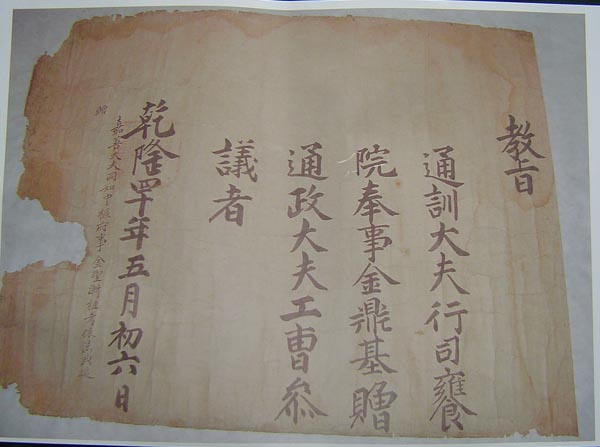 教旨
通訓大夫行司饔
院奉事金鼎基贈
通政大夫工曹叅
議者
乾隆四十年五月初六日
嘉善大夫同知中樞府事金聖祖考依法典追
贈